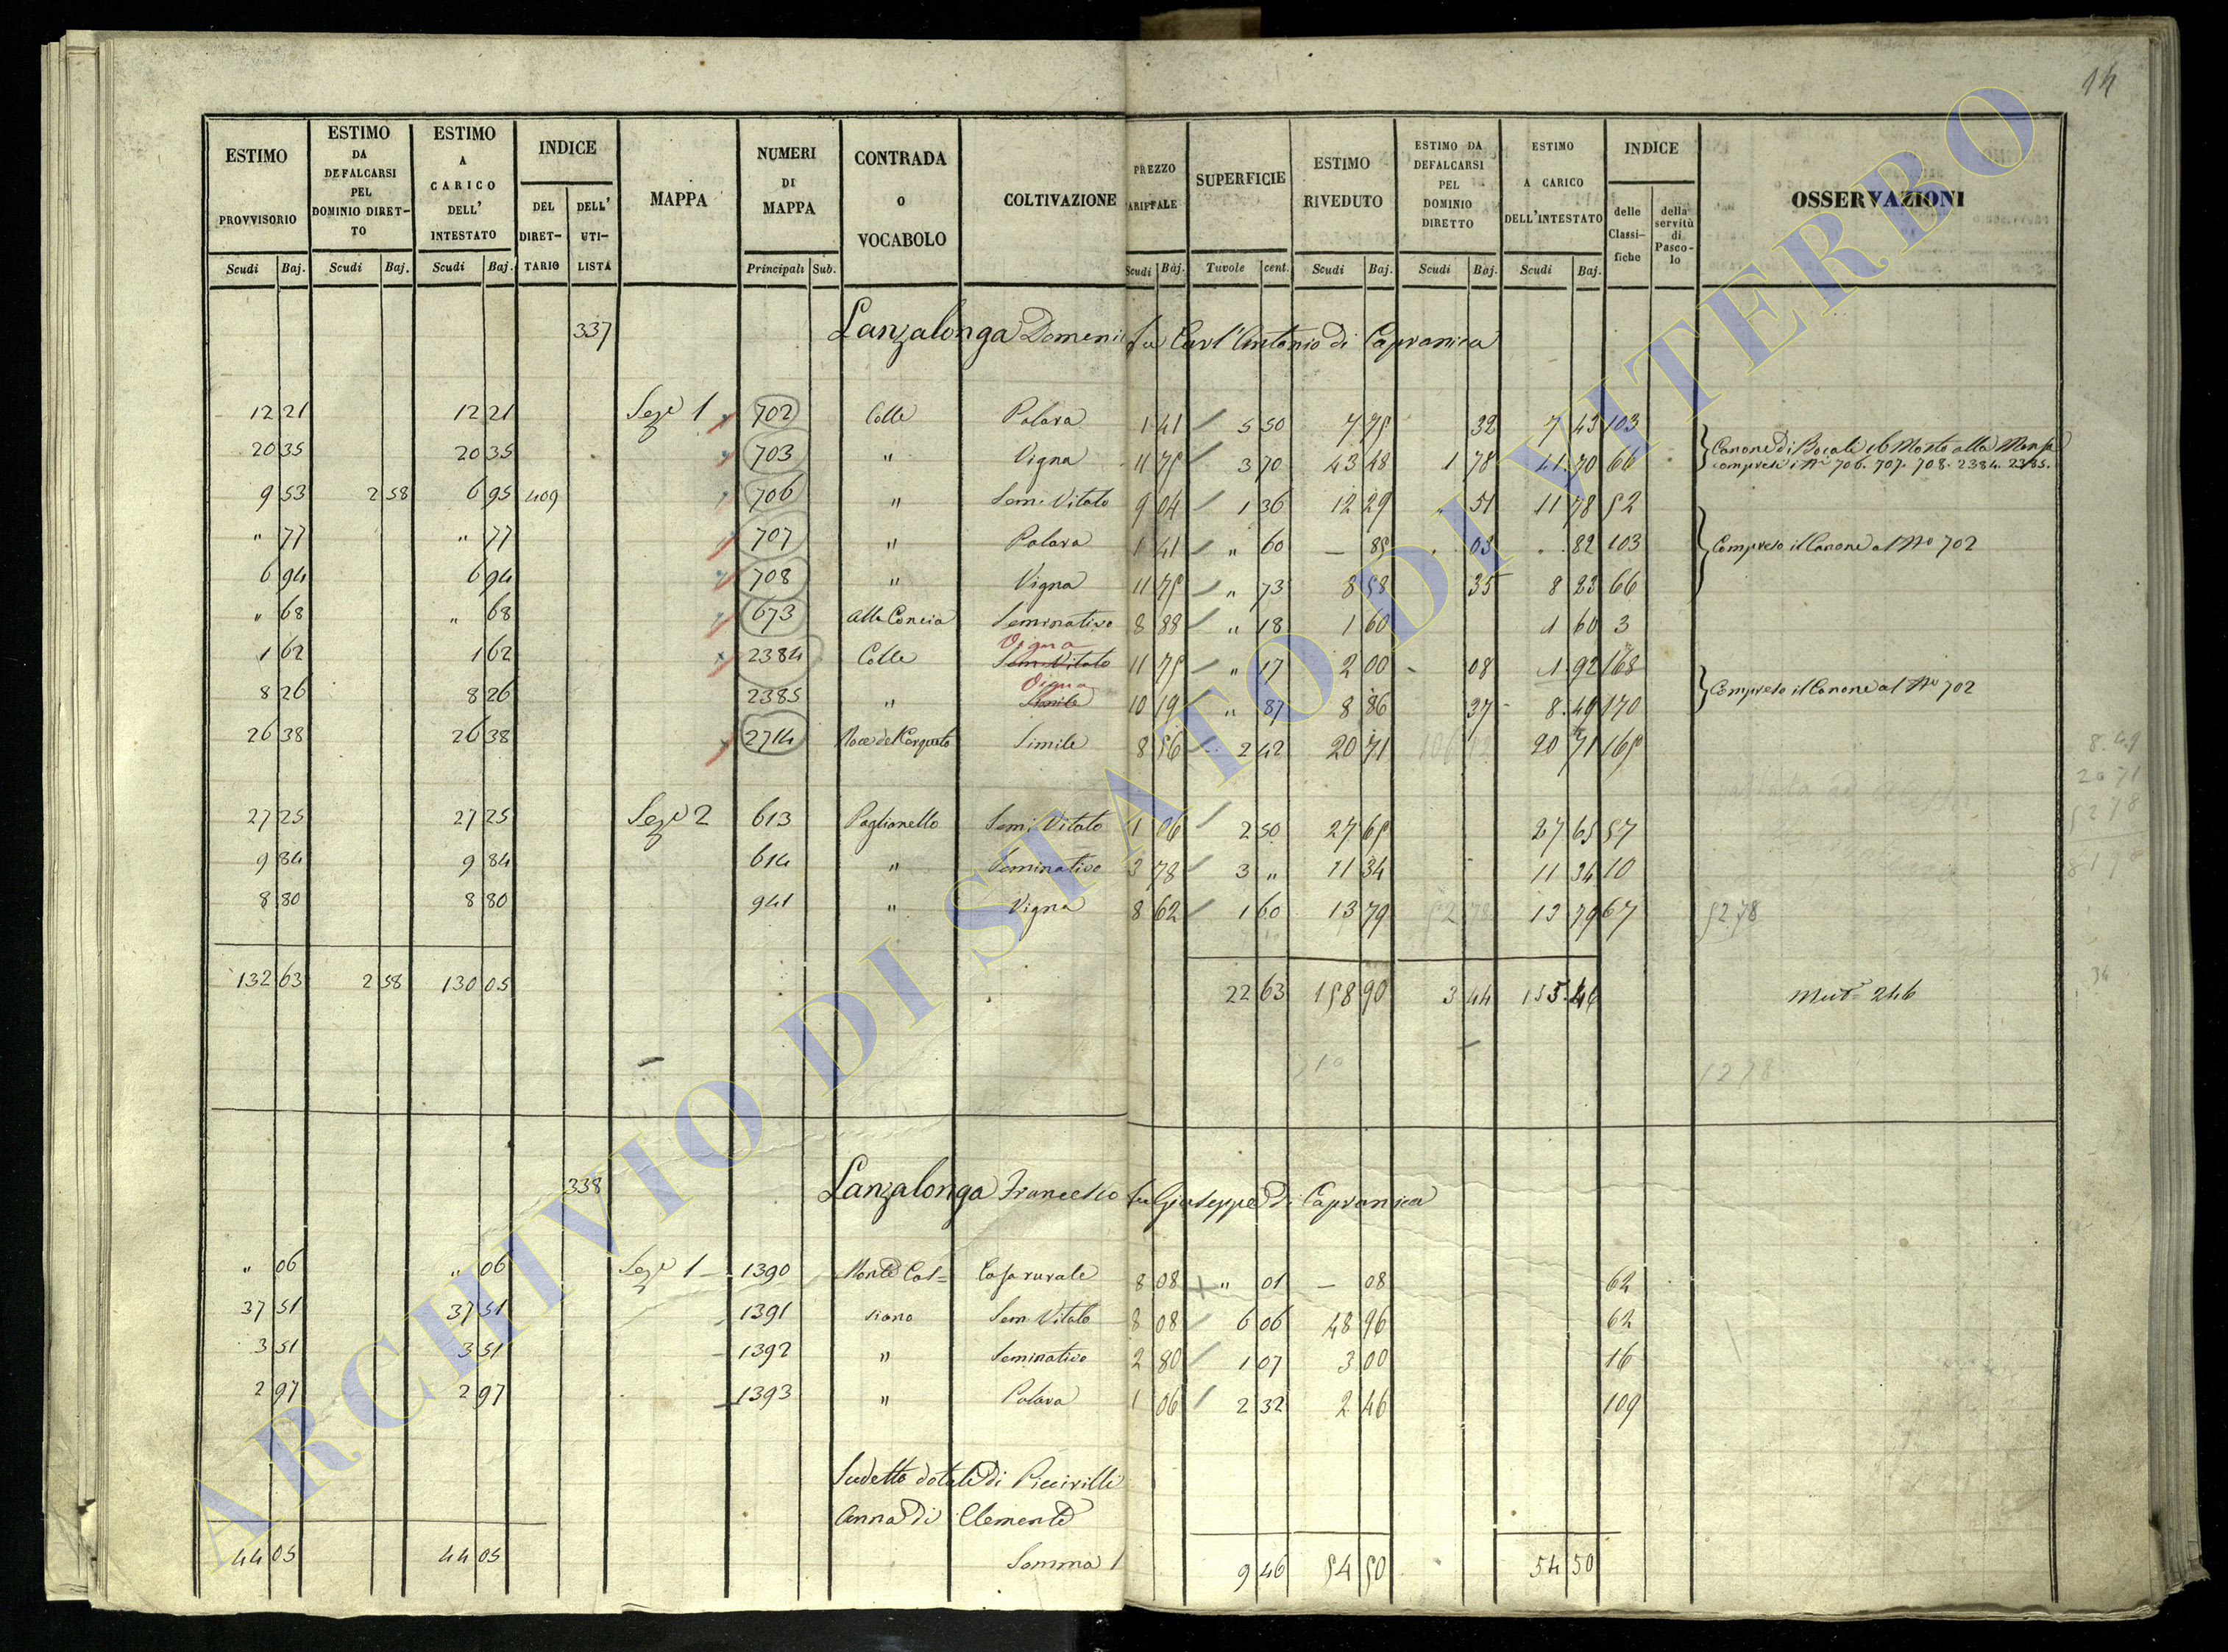 14
ESTIMO PROVVISORIO Scudi Baj. | ESTIMO DA DEFALCARSI PEL DOMINIO DIRETTO Scudi Baj. | ESTIMO A CARICO DELL' INTESTATO Scudi Baj. | INDICE DEL DIRETTARIO | DELL' UTILISTA | MAPPA | NUMERI DI MAPPA Principali Sub. | CONTRADA o VOCABOLO | COLTIVAZIONE | PREZZO TARIFFALE Scudi Baj. | SUPERFICIE Tavole cent. | ESTIMO RIVEDUTO Scudi Baj. | ESTIMO DA DEFALCARSI PEL DOMINIO DIRETTO Scudi Baj. | ESTIMO A CARICO DELL'INTESTATO Scudi Baj. | INDICE delle Classifiche | della servitù di Pascolo | OSSERVAZIONI
337 Lanzalonga Domenico fu Carl'Antonio di Capranica
12 21 12 21 Sez.e 1 702 Colle Polara 1 41 5 50 7 75 32 7 43 103
20 35 20 35 703 " Vigna 11 75 3 70 43 48 1 78 41 70 66 Canone di Bocali 16 Mosto alla Mensa
compresi i Ni 706. 707. 708. 2384. 2385.
9 53 2 58 6 95 409 706 " Sem. Vitato 9 04 1 36 12 29 51 11 78 52
" 77 " 77 707 " Polara 1 41 " 60 — 85 03 82 103 Compreso il Canone al No 702
6 94 6 94 708 " Vigna 11 75 " 73 8 58 35 8 23 66
" 68 " 68 673 Alla Concia Seminativo 8 88 " 18 1 60 1 60 3
Vigna
1 62 1 62 2384 Colle Sem. Vitato 11 75 " 17 2 00 08 1 92 168
Vigna
8 26 8 26 2385 " Simile 10 19 " 87 8 86 37 8 49 170 Compreso il Canone al No 702
26 38 26 38 2714 Noce del Cerqueto Simile 8 56 2 42 20 71 20 71 165
8.49
20 71
52 78
27 25 27 25 Sez.e 2 613 Paglianello Sem. Vitato 1 06 2 50 27 65 27 65 57
9 84 9 84 614 " Seminativo 3 78 3 " 11 34 11 34 10
8 80 8 80 941 " Vigna 8 62 1 60 13 79 52 78 13 79 67 52.78
132 63 2 58 130 05 22 63 158 90 3 44 155.46 Mut.e 246
338 Lanzalonga Francesco fu Giuseppe di Capranica
" 06 " 06 Sez.e 1 1390 Monte Cas= Casa rurale 8 08 " 01 — 08 62
37 51 37 51 1391 siano Sem. Vitato 8 08 6 06 48 96 62
3 51 3 51 1392 " Seminativo 2 80 1 07 3 00 16
2 97 2 97 1393 " Polara 1 06 2 32 2 46 109
Sudetto dotale di Piccirilli
Anna di Clemente
44 05 44 05 Somma 9 46 54 50 54 50
ARCHIVIO DI STATO DI VITERBO